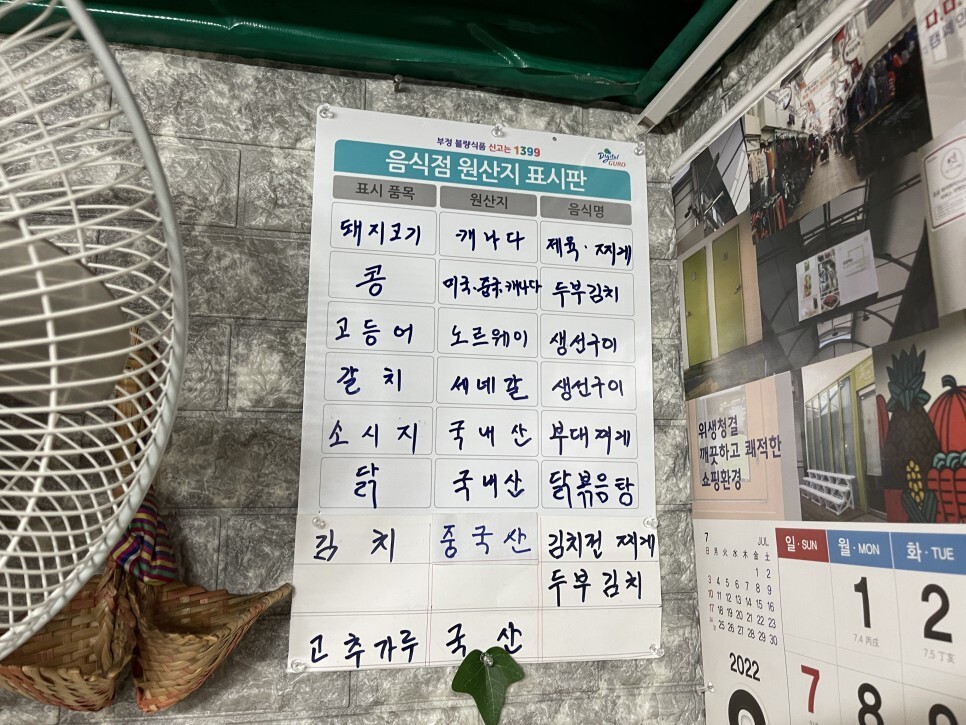 부정 불량식품 신고는 1399
Digital GURO
음식점 원산지 표시판
표시 품목 원산지 음식명
돼지고기 캐나다 제육·찌게
콩 미국.중국.캐나다 두부김치
고등어 노르웨이 생선구이
갈치 세네갈 생선구이
소시지 국내산 부대찌게
닭 국내산 닭볶음탕
김치 중국산 김치전 찌게
두부김치
고추가루 국산
위생청결
깨끗하고 쾌적한
쇼핑환경
7 JUL
日 月 火 水 木 金 土
1 2
3 4 5 6 7 8 9
10 11 12 13 14 15 16
17 18 19 20 21 22 23
24/31 25 26 27 28 29 30
2022
일·SUN 월·MON 화·TUE
1 2
7.4 丙戌 7.5 丁亥
7 8 9